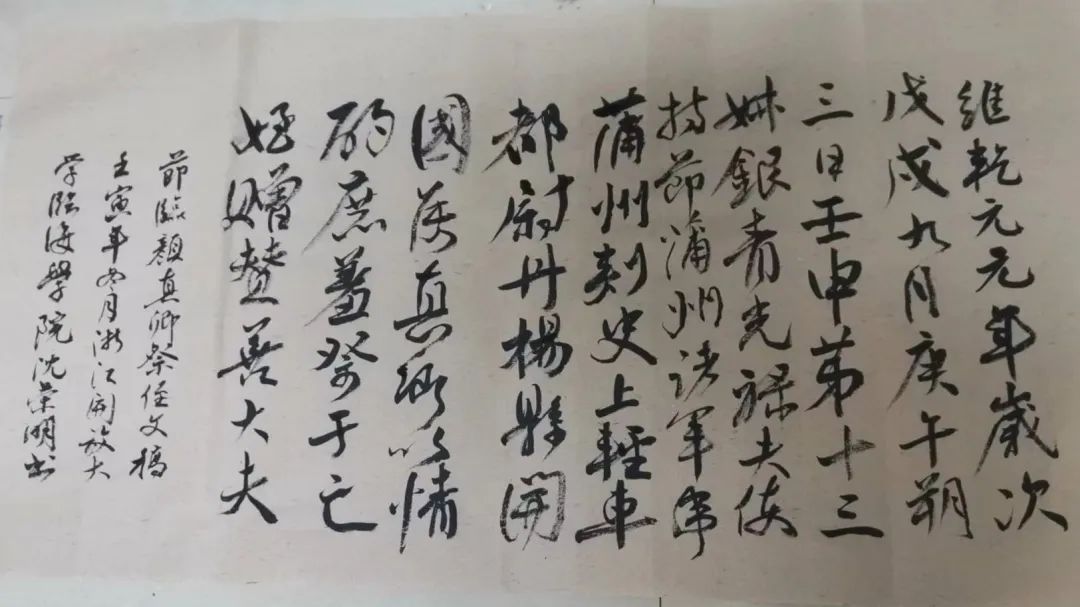 維乾元元年歲次
戊戌九月庚午朔
三日壬申第十三
姝銀青光祿夫使
持節蒲州諸軍事
蒲州刺史上輕車
都尉丹楊縣開
國侯真卿以清
酌庶羞祭于亡
姪贈贊善大夫
節臨顏真卿祭侄文稿
壬寅年冬月浙江開放大
学臨海學院沈荣明书